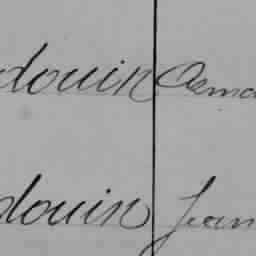 douin Osma
douin Jean